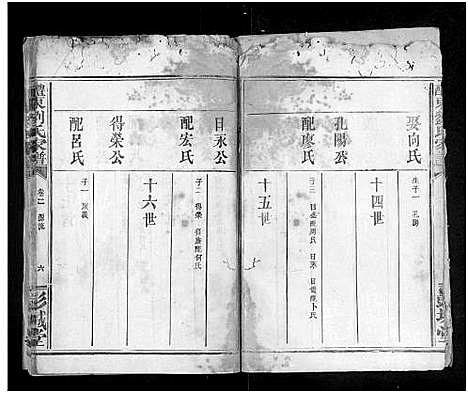 醴東劉氏家譜
娶向氏
生子一 孔陽
十四世
孔陽公
配廖氏
子三 日
十五世
日永公
配宏氏
子二 得榮
配何氏
十六世
得榮公
配呂氏
子一
醴東劉氏家譜
卷二
六
彭城堂